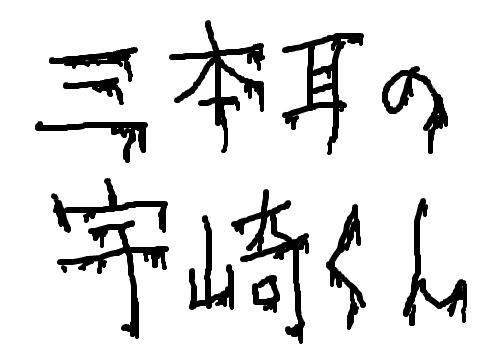 三本耳の
宇崎くん